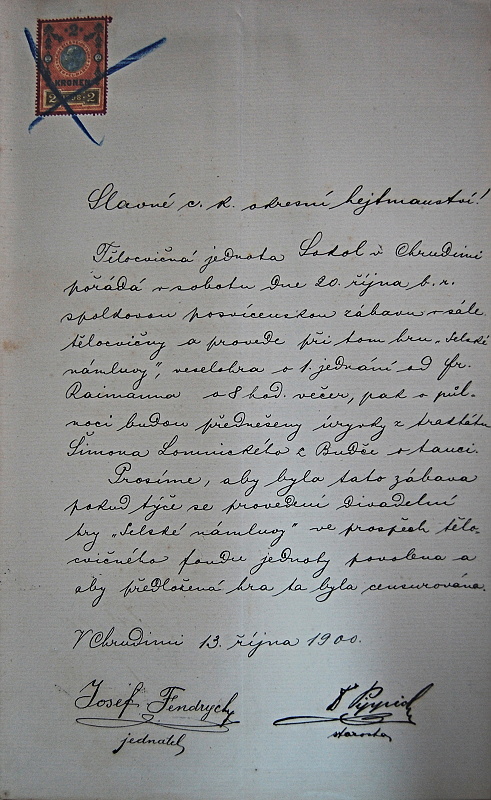 2
KRONEN
2 2
Slavné c. k. okresní hejtmanství!
Tělocvičná jednota Sokol v Chrudimi
pořádá v sobotu dne 20. října b. r.
spolkovou posvícenskou zábavu v sále
tělocvičny a provede při tom hru „Selské
námluvy", veselohra o 1. jednání od Fr.
Raimanna o 8 hod. večer, pak o půl-
noci budou předneseny úryvky z traktátu
Šimona Lomnického z Budče o tanci.
Prosíme, aby byla tato zábava
pokud týče se provedení divadelní
hry „Selské námluvy" ve prospěch tělo-
cvičného fondu jednoty povolena a
aby předložená hra ta byla censurována.
V Chrudimi 13. října 1900.
Josef Fendrych
jednatel
Dr
starosta